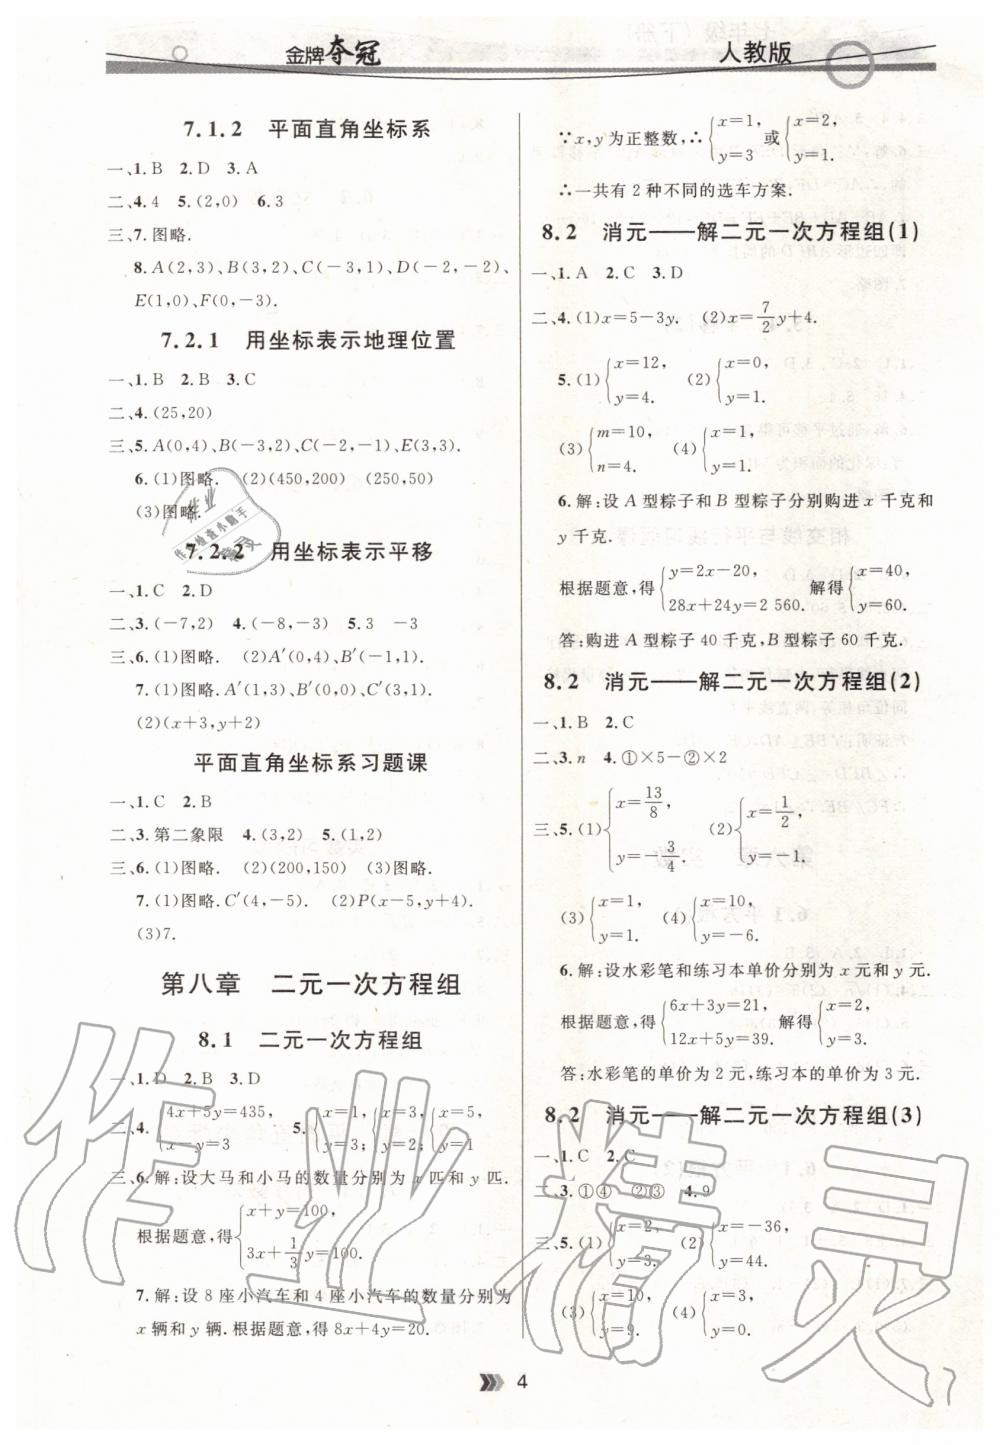 金牌夺冠
人教版
7.1.2 平面直角坐标系
一、1.B 2.D 3.A
二、4.4 5.(2,0) 6.3
三、7.图略.
8.A(2,3)、B(3,2)、C(-3,1)、D(-2,-2)、
E(1,0)、F(0,-3).
7.2.1 用坐标表示地理位置
一、1.B 2.B 3.C
二、4.(25,20)
三、5.A(0,4)、B(-3,2)、C(-2,-1)、E(3,3).
6.(1)图略. (2)(450,200) (250,50)
(3)图略.
7.2.2 用坐标表示平移
一、1.C 2.D
二、3.(-7,2) 4.(-8,-3) 5.3 -3
三、6.(1)图略. (2)A′(0,4)、B′(-1,1).
7.(1)图略.A′(1,3)、B′(0,0)、C′(3,1).
(2)(x+3,y+2)
平面直角坐标系习题课
一、1.C 2.B
二、3.第二象限 4.(3,2) 5.(1,2)
三、6.(1)图略. (2)(200,150) (3)图略.
7.(1)图略.C′(4,-5). (2)P(x-5,y+4).
(3)7.
第八章 二元一次方程组
8.1 二元一次方程组
一、1.D 2.B 3.D
二、4.{4x+5y=435, x-y=3 5.{x=1, y=3; {x=3, y=2; {x=5, y=1.
三、6.解:设大马和小马的数量分别为 x 匹和 y 匹.
根据题意,得{x+y=100, 3x+1/3y=100.
7.解:设 8 座小汽车和 4 座小汽车的数量分别为
x 辆和 y 辆.根据题意,得 8x+4y=20.
∵x,y 为正整数,∴{x=1, y=3 或{x=2, y=1.
∴一共有 2 种不同的选车方案.
8.2 消元——解二元一次方程组(1)
一、1.A 2.C 3.D
二、4.(1)x=5-3y. (2)x=7/2y+4.
5.(1){x=12, y=4. (2){x=0, y=1.
(3){m=10, n=4. (4){x=1, y=1.
6.解:设 A 型粽子和 B 型粽子分别购进 x 千克和
y 千克.
根据题意,得{y=2x-20, 28x+24y=2 560. 解得{x=40, y=60.
答:购进 A 型粽子 40 千克,B 型粽子 60 千克.
8.2 消元——解二元一次方程组(2)
一、1.B 2.C
二、3.n 4.①×5-②×2
三、5.(1){x=13/8, y=-3/4. (2){x=1/2, y=-1.
(3){x=1, y=1. (4){x=10, y=10.
6.解:设水彩笔和练习本单价分别为 x 元和 y 元.
根据题意,得{6x+3y=21, 12x+5y=39. 解得{x=2, y=3.
答:水彩笔的单价为 2 元,练习本单价为 3 元.
8.2 消元——解二元一次方程组(3)
一、1.C 2.C
二、3.①④ ②③ 4.9
三、5.(1){x=2, y=3. (2){x=-36, y=44.
(3){x=6, y=9. (4){x=3, y=0.
4
作业精灵